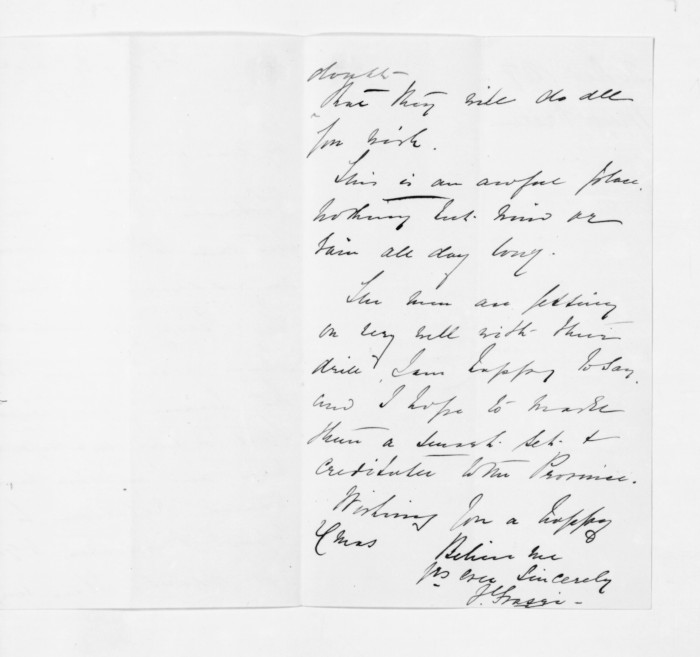 doubt
But they will do all
you wish.
This is an awful place.
nothing but wind or
rain all day long.
The men are getting
on very well with their
drill, I am happy to say,
and I hope to make
them a smart set &
creditable to the Province.
Wishing you a happy
Xmas Believe me
yrs ever sincerely